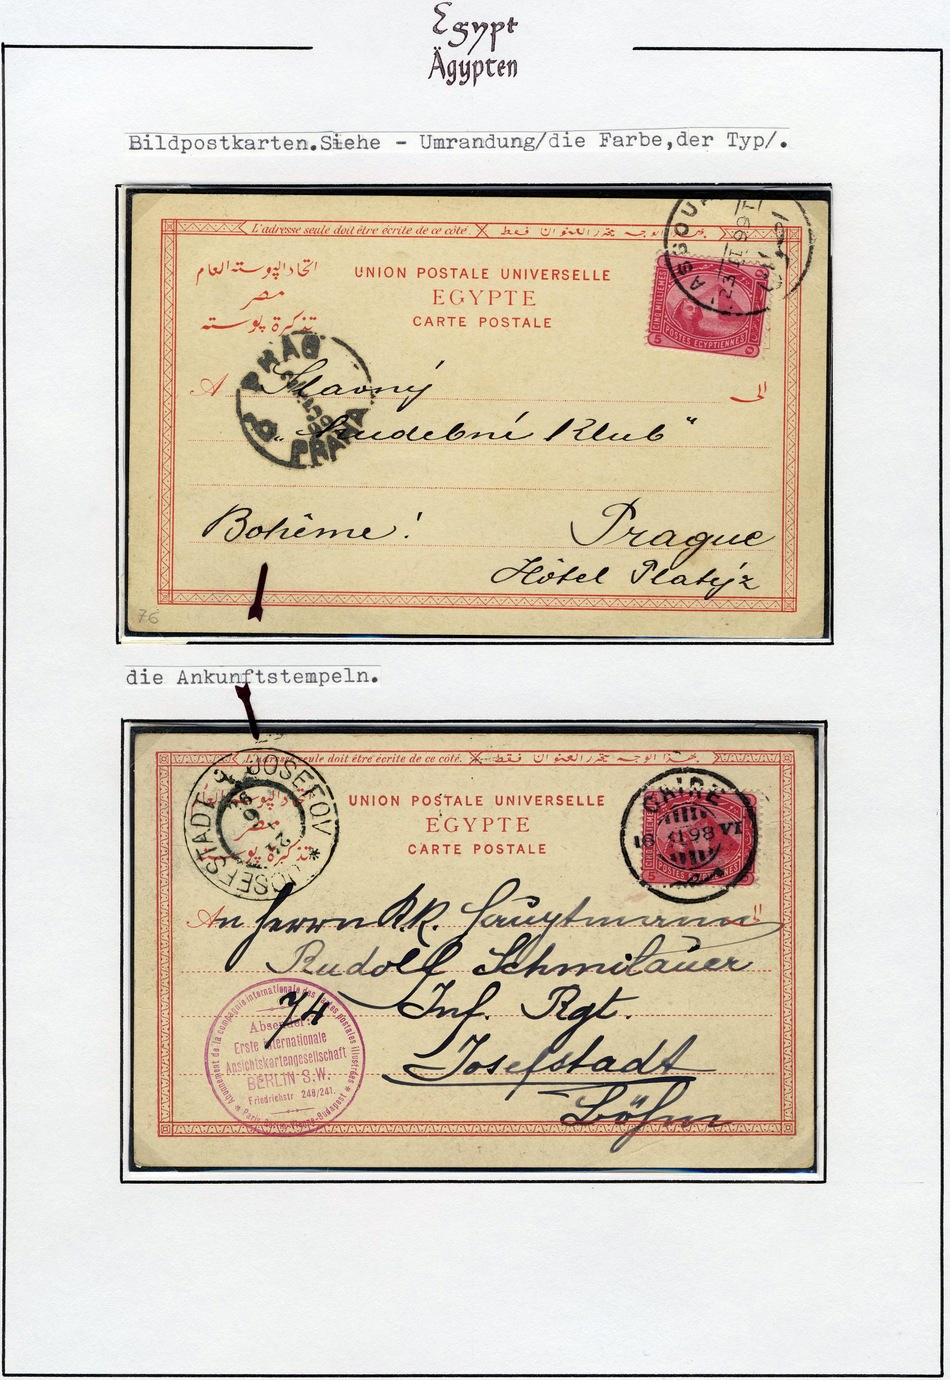 Egypt
Ägypten
Bildpostkarten.Siehe - Umrandung/die Farbe,der Typ/.
L'adresse seule doit être écrite de ce côté.
فقط
ASSOU
23 II 99 T
اتحاد البوسته العام
مصر
تذكرة بوسته
UNION POSTALE UNIVERSELLE
EGYPTE
CARTE POSTALE
CINQ MILLIEMES
POSTES EGYPTIENNES
5
PRAG
PRAHA
A Slavný
الى
„Hudební Klub“
Bohême! Prague
Hôtel Platýz
76
die Ankunftstempeln.
L'adresse seule doit être écrite de ce côté.
فقط
JOSEFOV
JOSEFSTADT
مصر
UNION POSTALE UNIVERSELLE
EGYPTE
CARTE POSTALE
CAIRE
16 II 98 VI
An Herrn K.K. Hauptmann
Rudolf Schmilauer
74 Inf. Rgt.
Josefstadt
Böhm
Abonnement de la compagnie internationale des cartes postales illustrées
Absender:
Erste Internationale
Ansichtskartengesellschaft
BERLIN S.W.
Friedrichstr. 240/241.